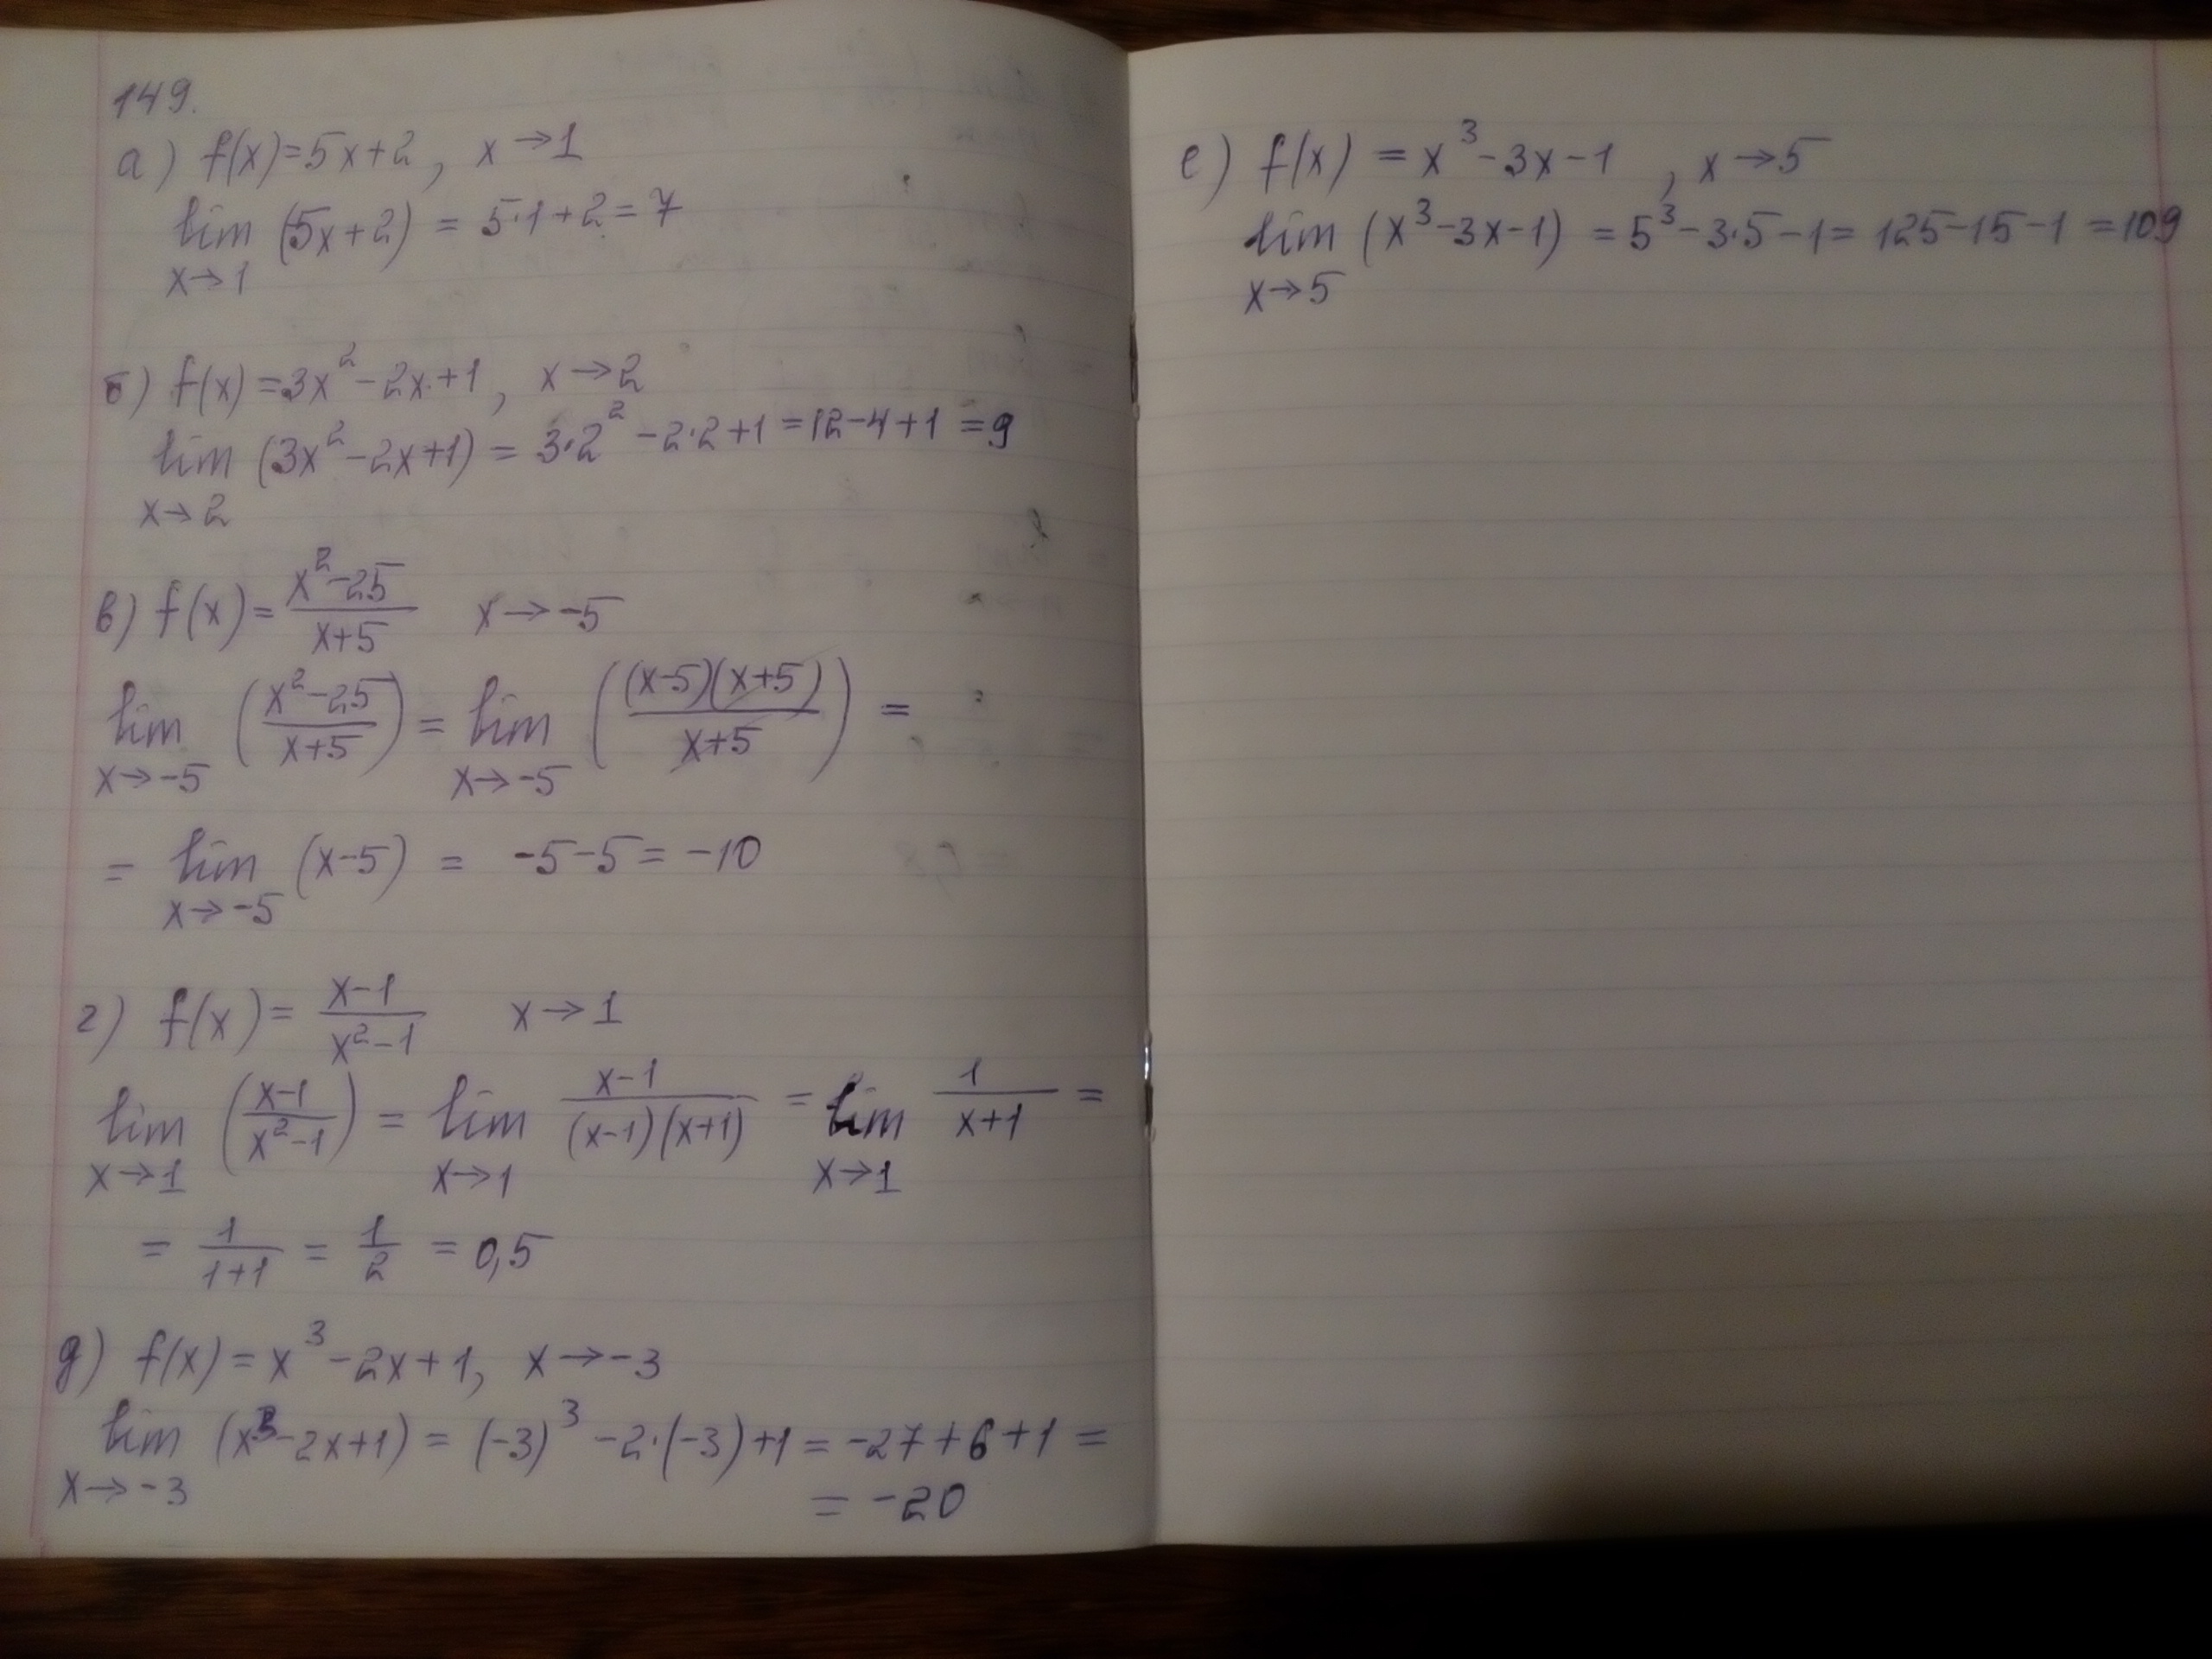 149.
а) f(x)=5x+2, x→1
lim (5x+2) = 5·1+2=7
x→1
б) f(x)=3x²-2x+1, x→2
lim (3x²-2x+1) = 3·2²-2·2+1=12-4+1=9
x→2
в) f(x)= (x²-25)/(x+5) x→-5
lim ((x²-25)/(x+5)) = lim ((x-5)(x+5)/(x+5)) =
x→-5 x→-5
= lim (x-5) = -5-5= -10
x→-5
г) f(x)= (x-1)/(x²-1) x→1
lim ((x-1)/(x²-1)) = lim (x-1)/((x-1)(x+1)) = lim 1/(x+1) =
x→1 x→1 x→1
= 1/(1+1) = 1/2 = 0,5
д) f(x)=x³-2x+1, x→-3
lim (x³-2x+1) = (-3)³-2·(-3)+1= -27+6+1 =
x→-3
= -20
е) f(x) = x³-3x-1, x→5
lim (x³-3x-1) = 5³-3·5-1= 125-15-1 =109
x→5